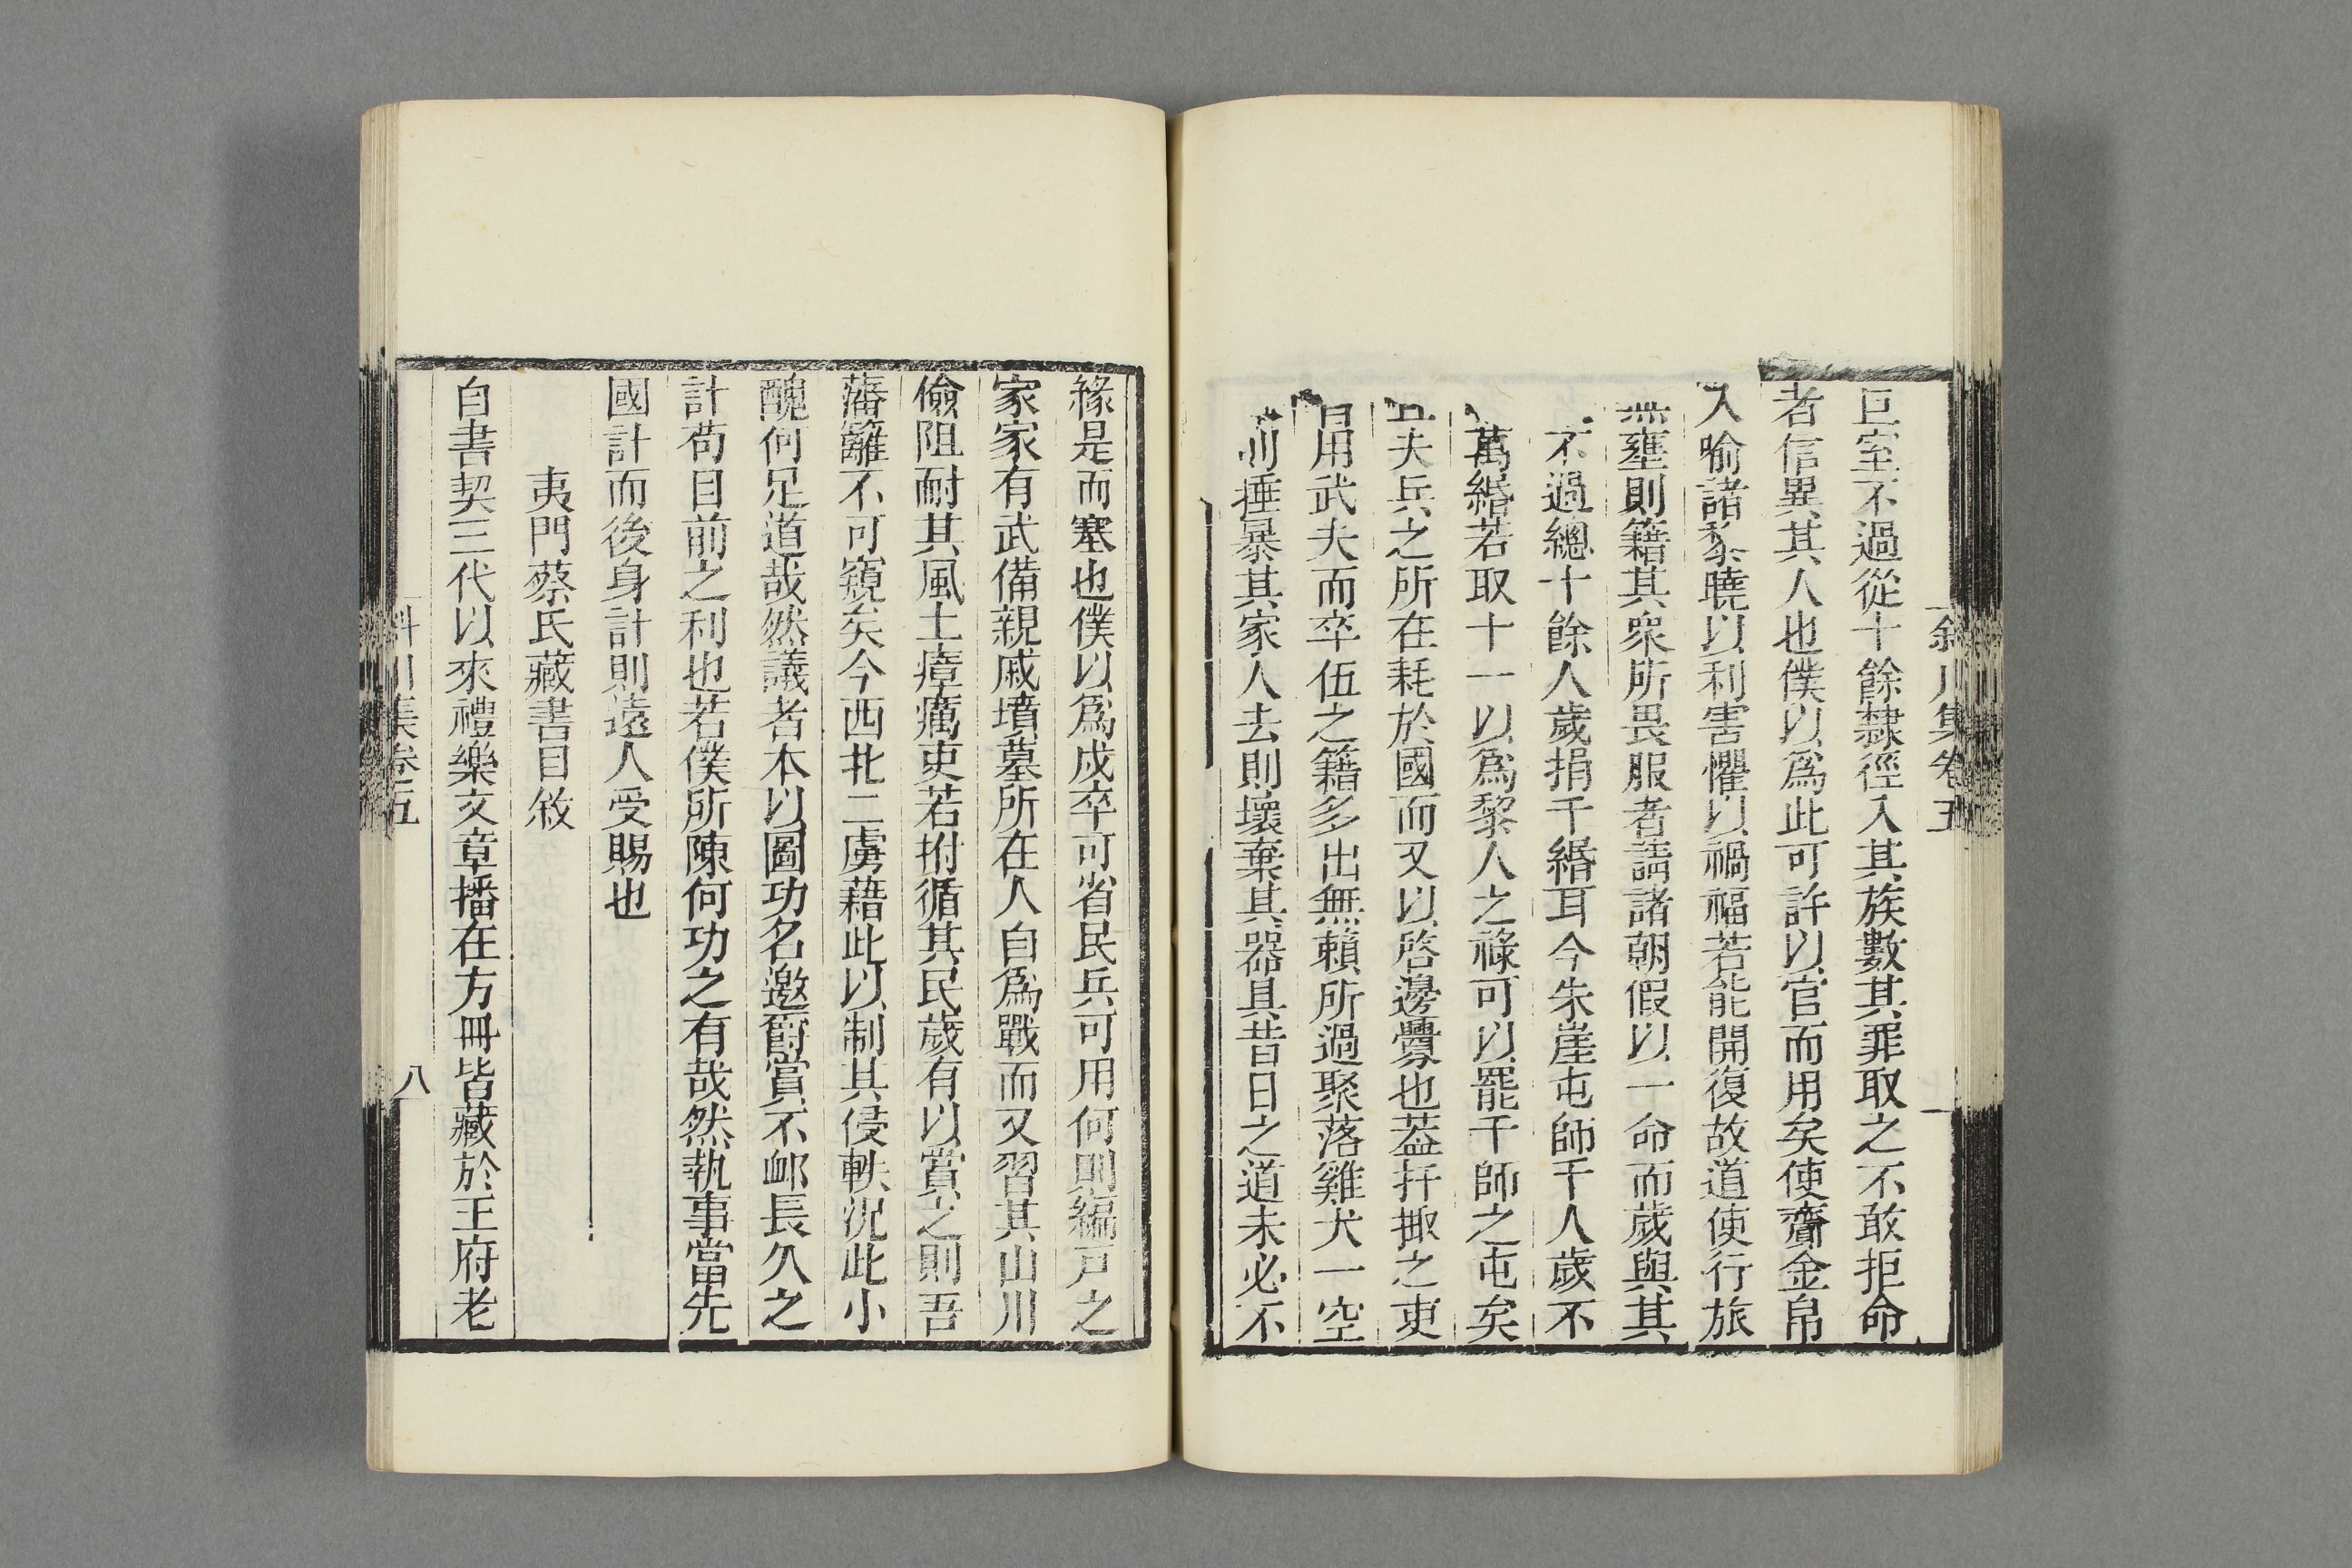 斜川集卷五
巨室不過從十餘隸徑入其族數其罪取之不敢拒命
者信異其人也僕以爲此可許以官而用矣使齎金帛
入喻諸黎曉以利害懼以禍福若能開復故道使行旅
無壅則籍其衆所畏服者請諸朝假以一命而歲與其
不過總十餘人歲捐千緡耳今朱崖屯師千人歲不
萬緡若取十一以爲黎人之祿可以罷千師之屯矣
且夫兵之所在耗於國而又以啓邊釁也葢扞掫之吏
用武夫而卒伍之籍多出無賴所過聚落雞犬一空
捶暴其家人去則壞棄其器具昔日之道未必不
緣是而塞也僕以爲戍卒可省民兵可用何則編戸之
家家有武備親戚墳墓所在人自爲戰而又習其山川
儉阻耐其風土瘴癘吏若拊循其民歲有以賞之則吾
藩籬不可窺矣今西北二虜藉此以制其侵軼況此小
醜何足道哉然議者本以圖功名邀爵賞不䘏長久之
計苟目前之利也若僕所陳何功之有哉然執事當先
國計而後身計則遠人受賜也
夷門蔡氏藏書目敘
自書契三代以來禮樂文章播在方冊皆藏於王府老
斜川集卷五 八